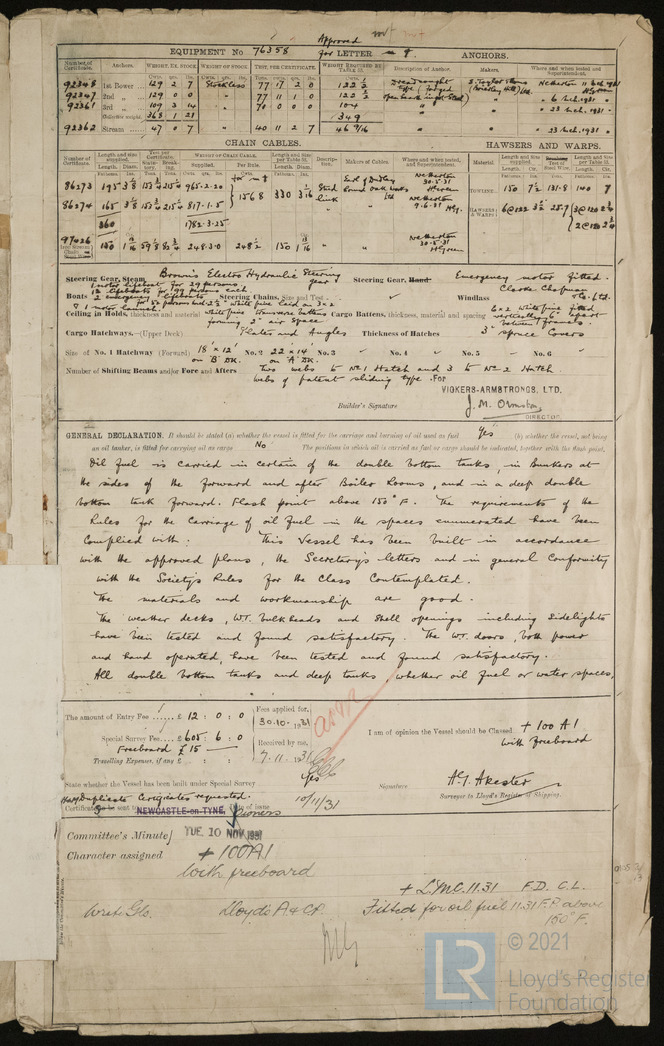 Approved
EQUIPMENT No 76358 for LETTER - †. ANCHORS.
Number of Certificate. Anchors. WEIGHT, EX. STOCK WEIGHT OF STOCK. TEST, PER CERTIFICATE. WEIGHT REQUIRED BY TABLE 53. Description of Anchor. Makers. Where and when tested and Superintendent.
92348 1st Bower 129 2 7 Stockless 77 17 2 0 122 ½
92347 2nd " 129 0 0 " 77 11 1 0 122 ½ " " 6 Feb. 1931 "
92361 3rd " 109 3 14 " 70 0 0 0 104 " " 23 Feb. 1931 "
Collective weight 368 1 21 349
92362 Stream 47 0 7 " 40 11 2 7 46 9/16 " " 23 Feb. 1931 "
CHAIN CABLES. HAWSERS AND WARPS.
Number of Certificate. Length and size supplied. Test per Certificate. WEIGHT OF CHAIN CABLE. Length and size per Table 53. Description. Makers of Cables. Where and when tested, and Superintendent. Material. Length and size supplied. Test of Steel Wire. Length and size per Table 53.
86273 195 3⅛ 153¾ 215¼ 965.2.20 1568 330 3 1/16 Stud link Netherton 30-5-31 TOWLINE 150 7½ 131.8 140 7
86274 165 3⅛ 153¾ 215¼ 817.1.5 Netherton 9.6.31 HAWSERS & WARPS 6@122 3½ 25.7
360 1782.3.25
97426 248.3.0 248½ 150 " " Netherton 30-5-31
Steering Gear, Steam Brown's Electro Hydraulic Steering gear Steering Gear, Hand Emergency motor fitted.
Boats Steering Chains, Size and Test ✓ Windlass Clarke Chapman & Co. Ltd.
Ceiling in Holds, thickness and material Cargo Battens, thickness, material and spacing
Cargo Hatchways.—(Upper Deck) Plates and Angles Thickness of Hatches 3" spruce Covers
Size of No. 1 Hatchway (Forward) 18' x 12' on 'B' Dk. No. 2 22' x 14' on 'A' Dk. No. 3 No. 4 No. 5 No. 6
Number of Shifting Beams and/or Fore and Afters Two webs to No 1 Hatch and 3 to No 2 Hatch.
webs of patent sliding type. For
VICKERS-ARMSTRONGS, LTD.
Builder's Signature J. M. Ormston
DIRECTOR.
GENERAL DECLARATION. It should be stated (a) whether the vessel is fitted for the carriage and burning of oil used as fuel Yes (b) whether the vessel, not being
an oil tanker, is fitted for carrying oil as cargo No. The positions in which oil is carried as fuel or cargo should be indicated, together with the flash point.
Oil fuel is carried in certain of the double bottom tanks, in Bunkers at
the sides of the forward and after Boiler Rooms, and in a deep double
bottom tank forward. Flash point above 150° F. The requirements of the
Rules for the Carriage of oil fuel in the spaces enumerated have been
complied with. This Vessel has been built in accordance
with the approved plans, the Secretary's letters and in general conformity
with the Society's Rules for the Class Contemplated.
The materials and workmanship are good.
The weather decks, W.T. bulkheads and shell openings including sidelights
have been tested and found satisfactory. The W.T. doors, both power
and hand operated, have been tested and found satisfactory.
All double bottom tanks and deep tanks, whether oil fuel or water spaces,
The amount of Entry Fee £ 12 : 0 : 0 Fees applied for, 30.10.1931
Special Survey Fee £ 605 : 6 : 0 Received by me,
Freeboard £15 —
Travelling Expenses, if any £ : : 7.11.1931
I am of opinion the Vessel should be Classed + 100 A1
with Freeboard
State whether the Vessel has been built under Special Survey Yes
Signature A. G. Akester
Surveyor to Lloyd's Register of Shipping.
Duplicate Certificates requested. 10/11/31
Certificate to be sent to NEWCASTLE-on-TYNE. Date of issue
Committee's Minute TUE 10 NOV 1931
Character assigned + 100A1
With freeboard
+ L.M.C. 11.31 F.D. C.L.
Writ Glo. Lloyd's A & CP. Fitted for oil fuel 11.31 F.P. above
150° F.
LR
© 2021
Lloyd's Register
Foundation